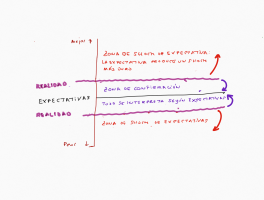 Mejor
ZONA DE SHOCK DE EXPECTATIVA
LA EXPECTATIVA PRODUCE UN SHOCK
MÁS DURO
REALIDAD
ZONA DE CONFIRMACIÓN
EXPECTATIVAS
TODO SE INTERPRETA SEGÚN EXPECTATIVAS
REALIDAD
ZONA DE SHOCK DE EXPECTATIVAS
Peor